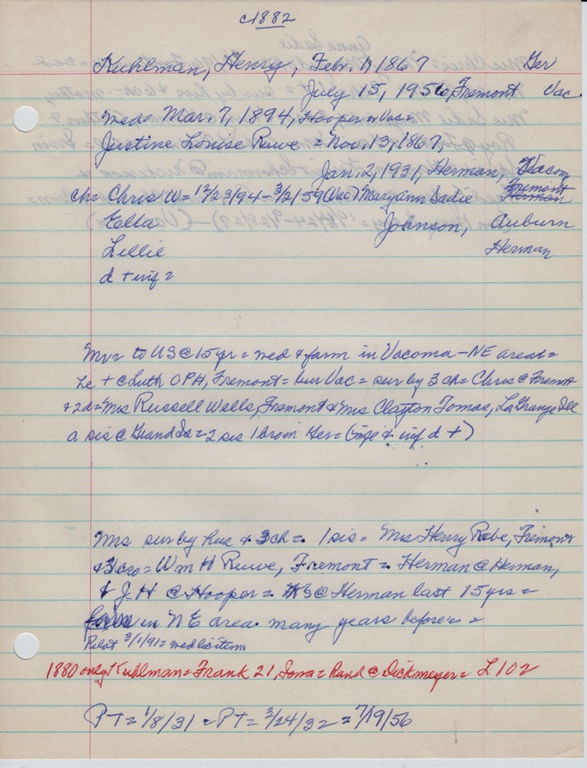 c1882
Kuhlman, Henry, Febr. 1, 1867 Ger
July 15, 1956, Fremont Vac
med= Mar. 7, 1894, Hooper=Vac=
Justine Louise Ruwe = Nov. 13, 1867,
Jan. 2, 1931, Herman, Vacoma
ch= Chris W= 12/23/94-3/2/59 (Vac) Maryann Sadie Fremont Herman
Edla Johnson, Auburn
Lillie Herman
d + inf =
Mv= to US @ 15 yr = med & farm in Vacoma-NE area=
he + @ Luth OPH, Fremont= bur Vac = sur by 3 ch= Chris @ Fremont
+ 2d= Mrs Russell Wells, Fremont & Mrs Clayton Tomas, LaGrange Ill
a sis @ Grand Is= 2 sis 1 bro in Ger= ( & inf d +)
Mrs sur by hus & 3 ch= 1 sis= Mrs Henry Rabe, Fremont
+ 3 bro= Wm H Ruwe, Fremont= Herman @ Herman,
& J. H @ Hooper= @ Herman last 15 yrs=
farm in NE area many years before= =
Pilot 3/1/91= med lic item
1880 only Kuhlman= Frank 21, Iowa= hand @ Dickmeyer= L102
PT= 1/8/31 = PT= 3/24/32 = 7/19/56